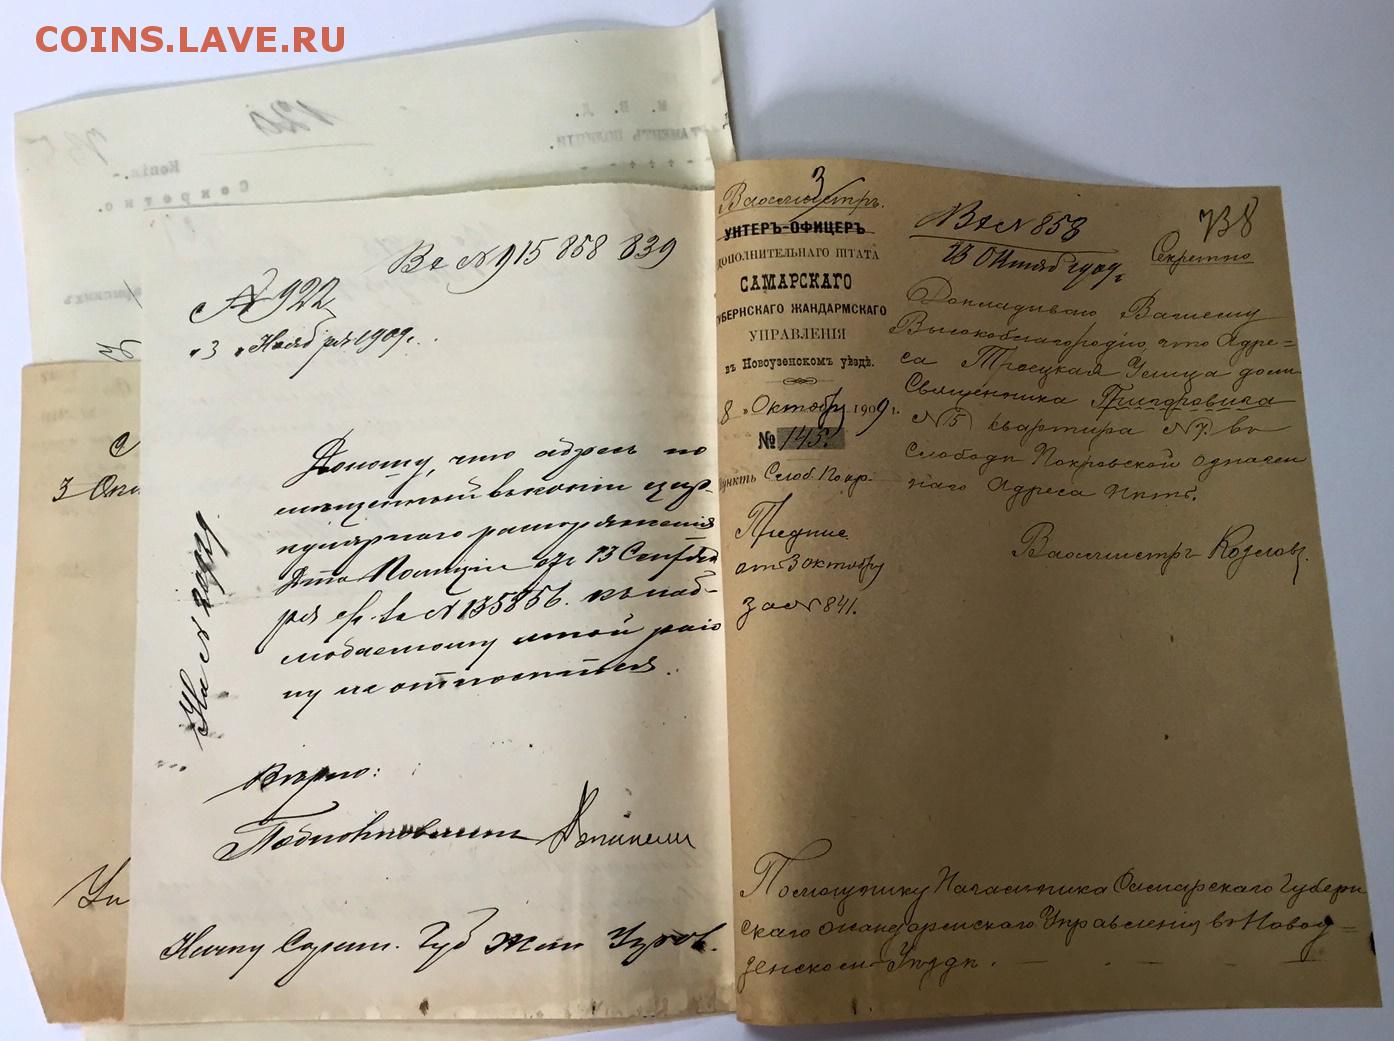 COINS.LAVE.RU
М. В. Д.
ДЕПАРТАМЕНТЪ ПОЛИЦІИ.
Копія.
Секретно.
Вх № 915 858 839
№ 922
"3" Ноября 1909 г.
Доношу, что адресъ по
мѣщенный въ копіи цир-
кулярнаго распоряженія
Д-та Полиціи отъ 13 Сентяб
ря с/г. за № 135856. къ наб-
людаемому мной райо
ну не относится.
Вѣрно:
Подполковникъ
Нач-ку Сарат. Губ Жан Управ.
3
Вахмистръ.
УНТЕРЪ-ОФИЦЕРЪ
ДОПОЛНИТЕЛЬНАГО ШТАТА
САМАРСКАГО
ГУБЕРНСКАГО ЖАНДАРМСКАГО
УПРАВЛЕНІЯ
въ Новоузенскомъ уѣздѣ.
8 " Октября 1909 г.
№ 145.
Пунктъ Слоб. Покр.
Предпис.
от 3 октября
за № 841.
Вх № 858
13 Октяб 1909 г
738
Секретно
Докладываю Вашему
Высокоблагородію, что Адре=
са Троецкая Улица домъ
Священника Григоровича
№ 5 квартира № 7. въ
Слободѣ Покровской означен
наго Адреса нѣтъ.
Вахмистръ Козловъ.
Помощнику Начальника Самарскаго Губерн
скаго Жандармскаго Управленія въ Новоу=
зенскомъ Уѣздѣ.